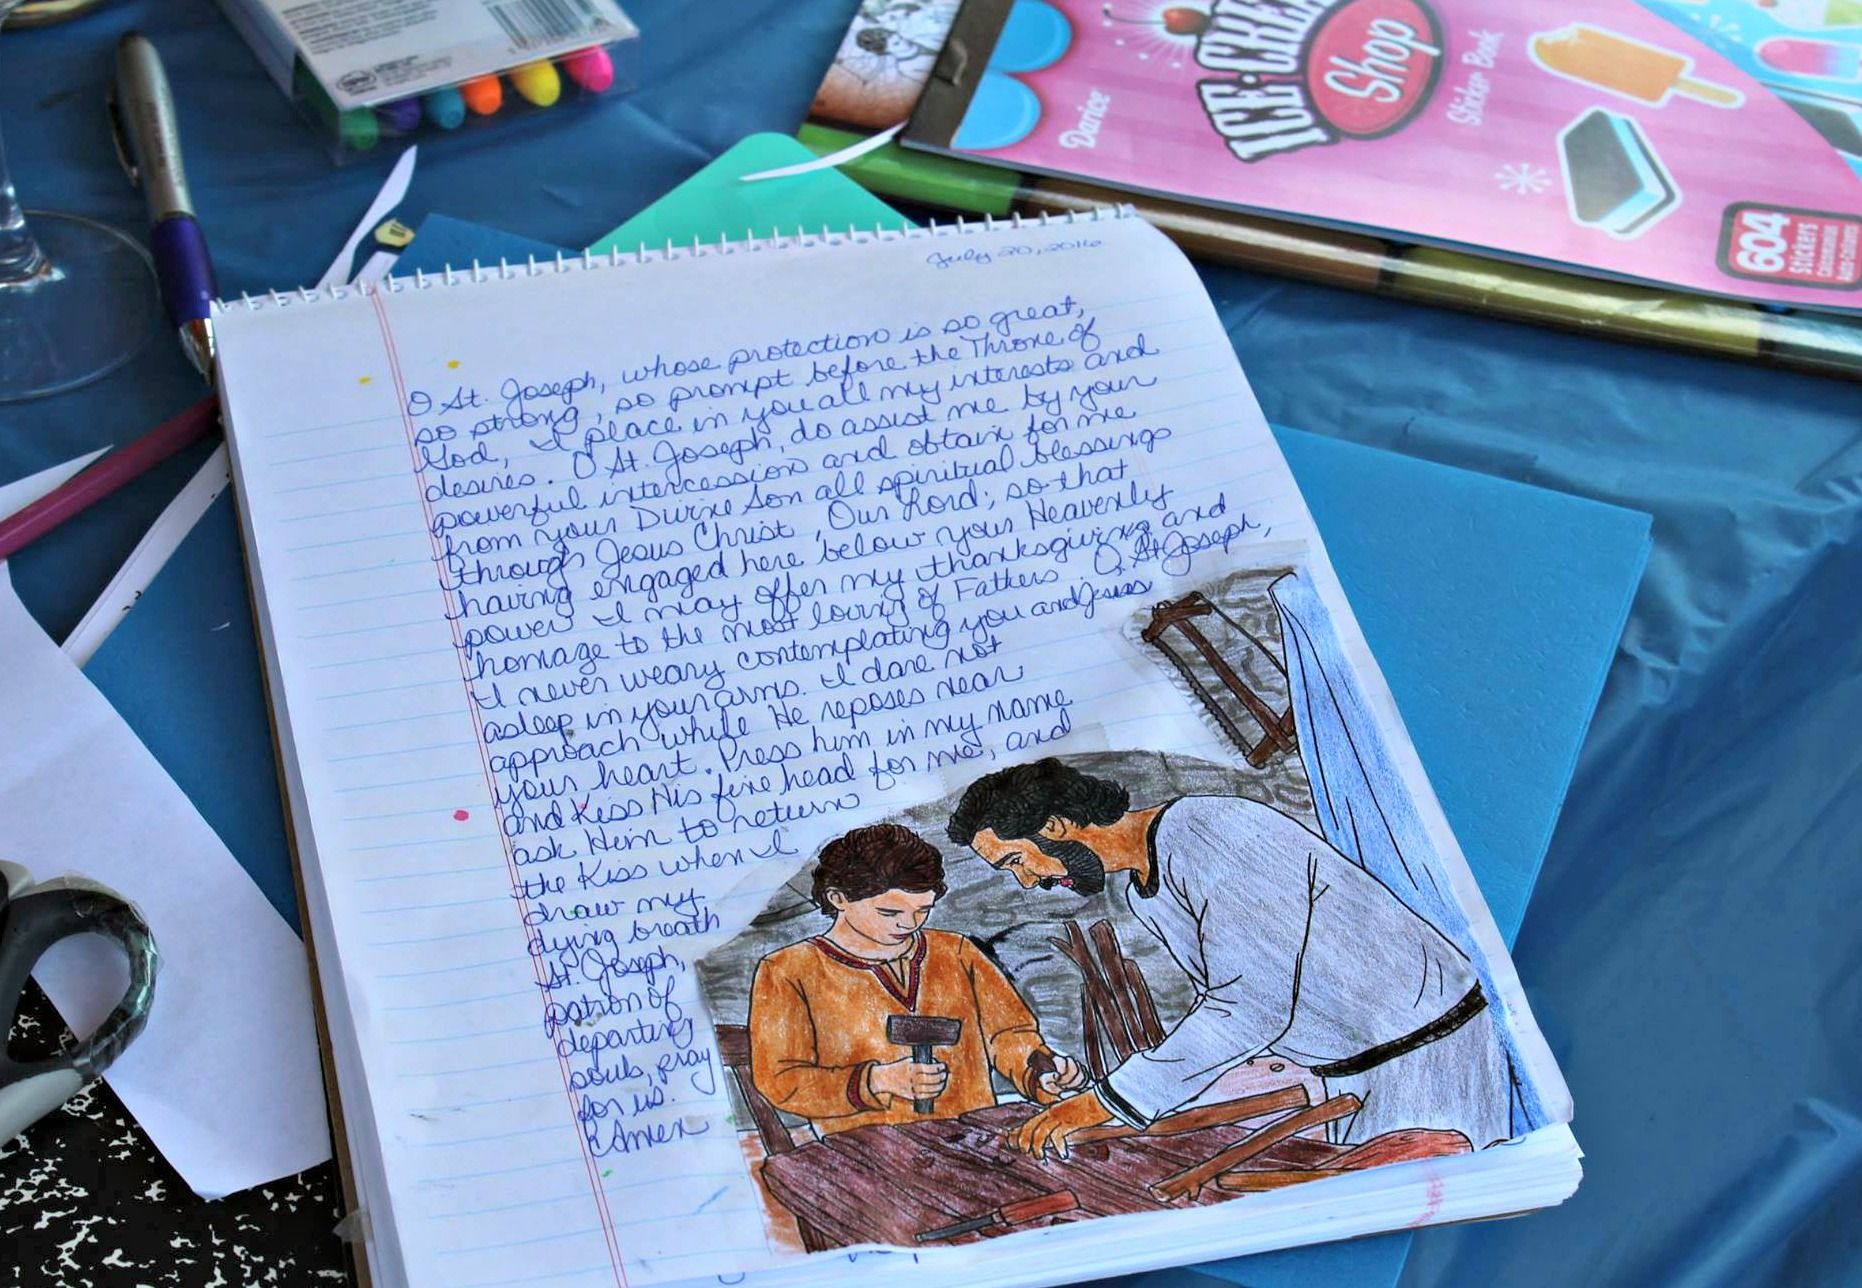 ICE-CREAM
Shop
Sticker Book
Darice
604
Stickers
July 20, 2016
O St. Joseph, whose protection is so great,
so strong, so prompt before the Throne of
God, I place in you all my interests and
desires. O St. Joseph, do assist me by your
powerful intercession and obtain for me
from your Divine Son all spiritual blessings
through Jesus Christ, Our Lord; so that
having engaged here below your Heavenly
power I may offer my thanksgiving and
homage to the most loving of Fathers. O St. Joseph,
I never weary contemplating you and Jesus
asleep in your arms. I dare not
approach while He reposes near
your heart. Press him in my name
and Kiss His fine head for me, and
ask Him to return
the Kiss when I
draw my
dying breath
St. Joseph,
patron of
departing
souls, pray
for us.
Amen